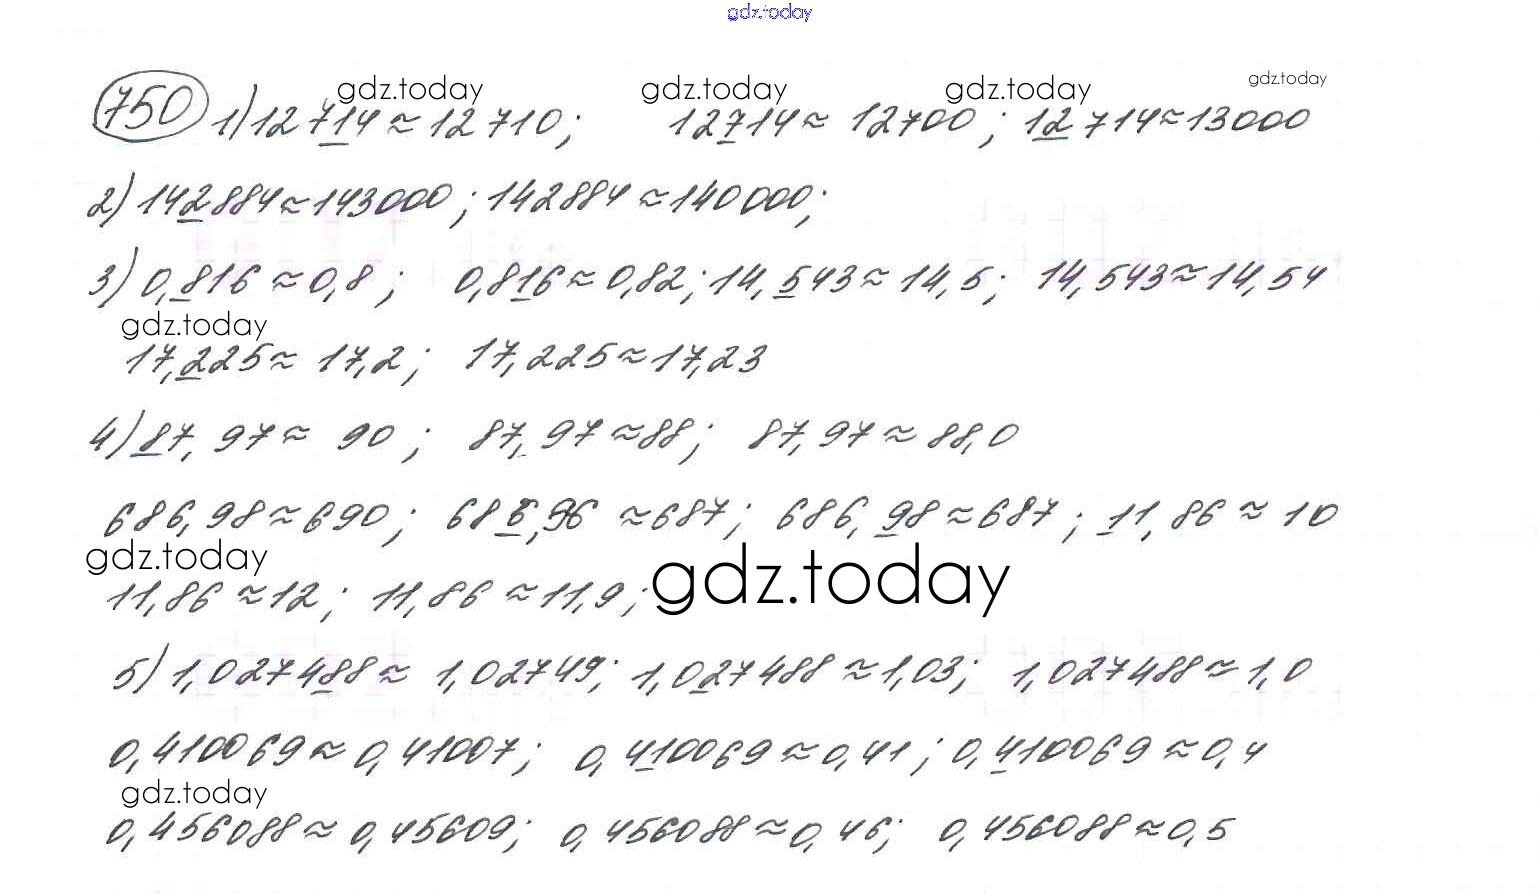 gdz.today
gdz.today gdz.today gdz.today gdz.today
750 1) 12714 ≈ 12710; 12714 ≈ 12700; 12714 ≈ 13000
2) 142884 ≈ 143000; 142884 ≈ 140000;
3) 0,816 ≈ 0,8; 0,816 ≈ 0,82; 14,543 ≈ 14,5; 14,543 ≈ 14,54
gdz.today
17,225 ≈ 17,2; 17,225 ≈ 17,23
4) 87,97 ≈ 90; 87,97 ≈ 88; 87,97 ≈ 88,0
686,98 ≈ 690; 686,96 ≈ 687; 686,98 ≈ 687; 11,86 ≈ 10
gdz.today gdz.today
11,86 ≈ 12; 11,86 ≈ 11,9;
5) 1,027488 ≈ 1,02749; 1,027488 ≈ 1,03; 1,027488 ≈ 1,0
0,410069 ≈ 0,41007; 0,410069 ≈ 0,41; 0,410069 ≈ 0,4
gdz.today
0,456088 ≈ 0,45609; 0,456088 ≈ 0,46; 0,456088 ≈ 0,5